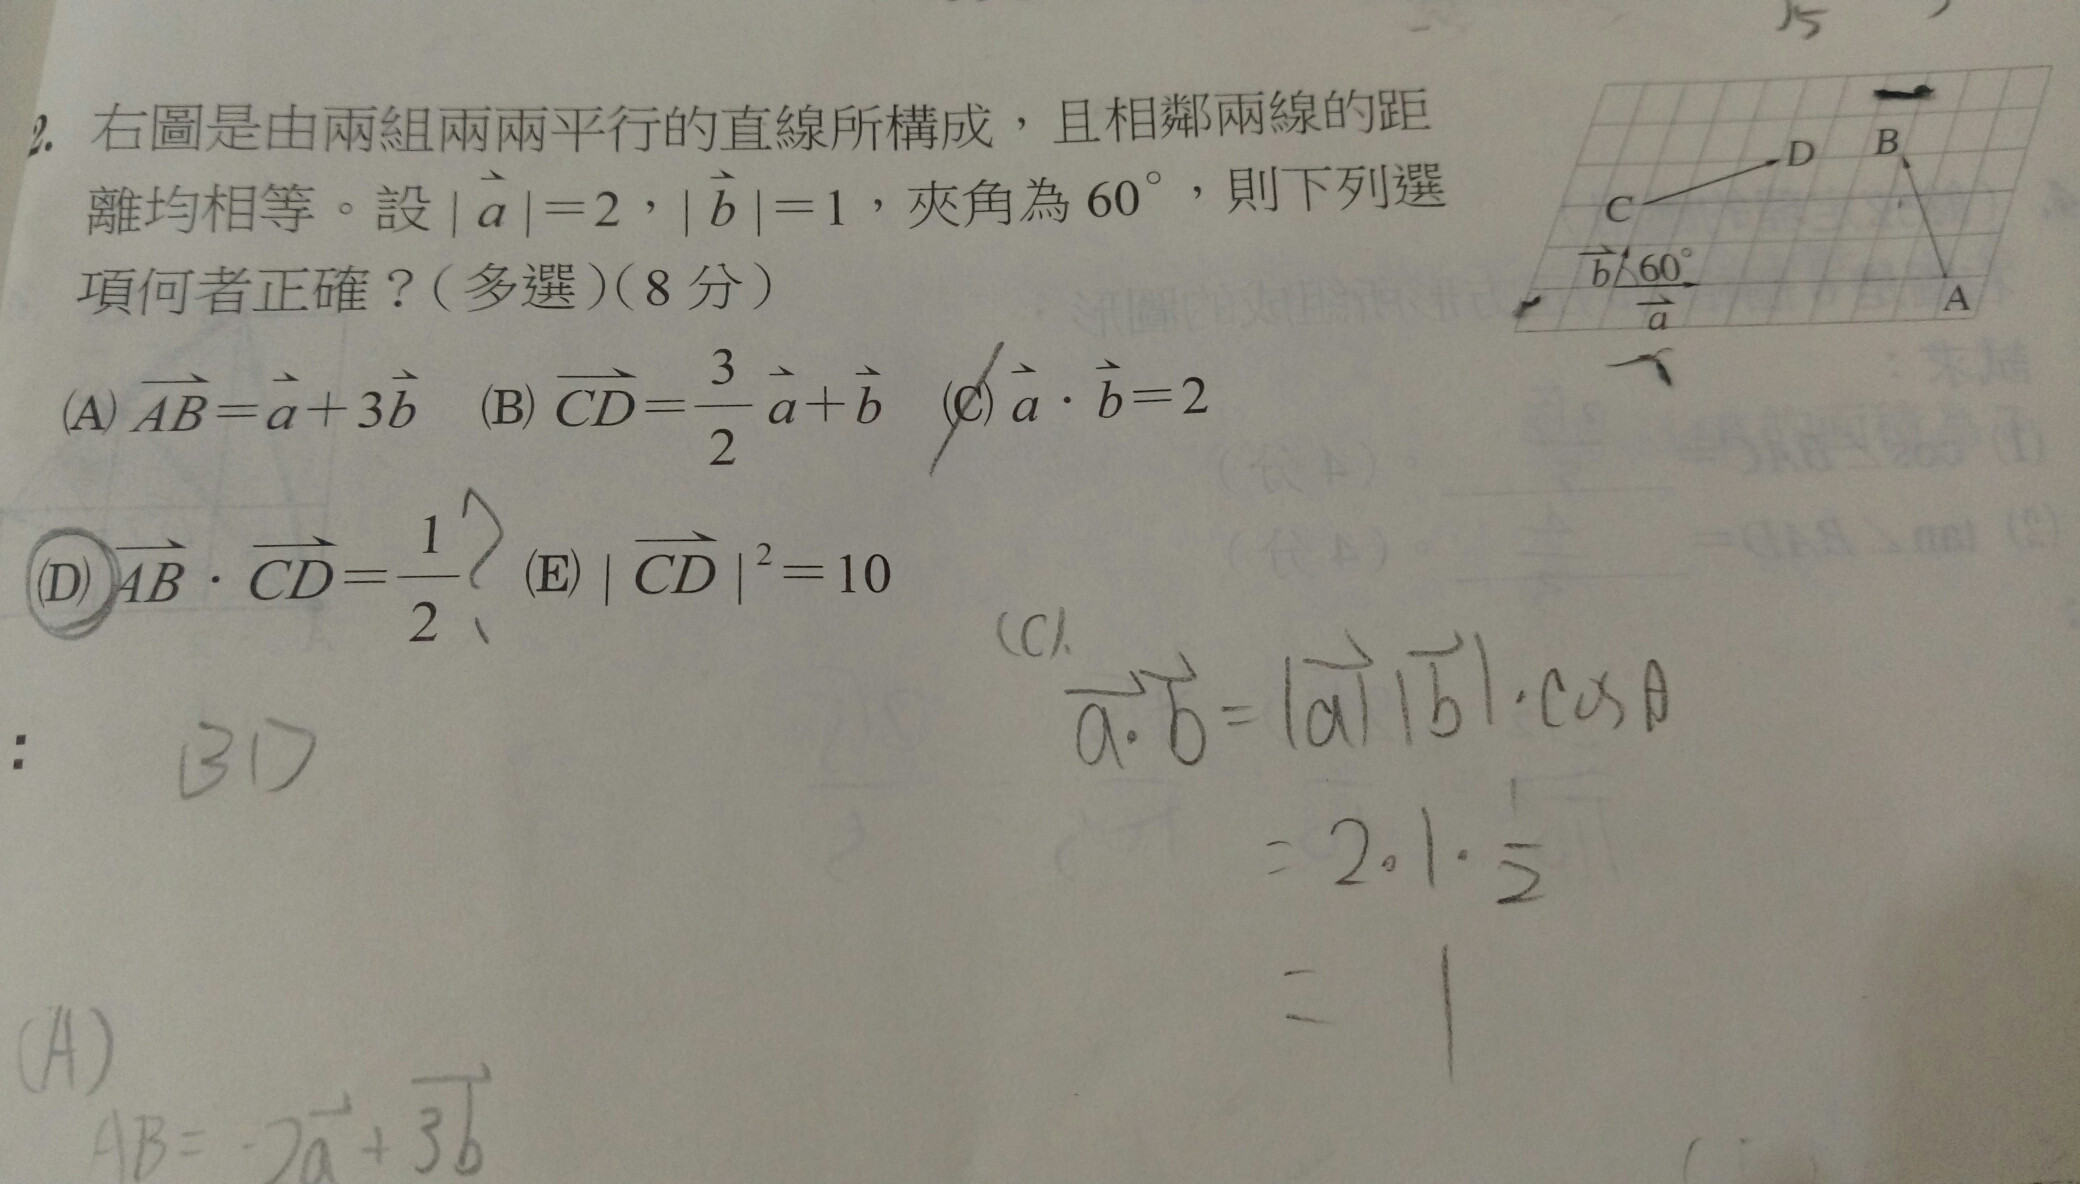 2. 右圖是由兩組兩兩平行的直線所構成，且相鄰兩線的距
離均相等。設 | a⃗ |=2，| b⃗ |=1，夾角為 60°，則下列選
項何者正確？(多選)(8 分)
D
B
C
b⃗ 60°
a⃗
A
(A) AB⃗=a⃗+3b⃗ (B) CD⃗=3/2 a⃗+b⃗ (C) a⃗・b⃗=2
(D) AB⃗・CD⃗=1/2 ? (E) | CD⃗ |²=10
:
BD
(C).
a⃗・b⃗=|a⃗||b⃗|・cosθ
=2・1・1/2
= 1
(A)
AB= -2a⃗+3b⃗